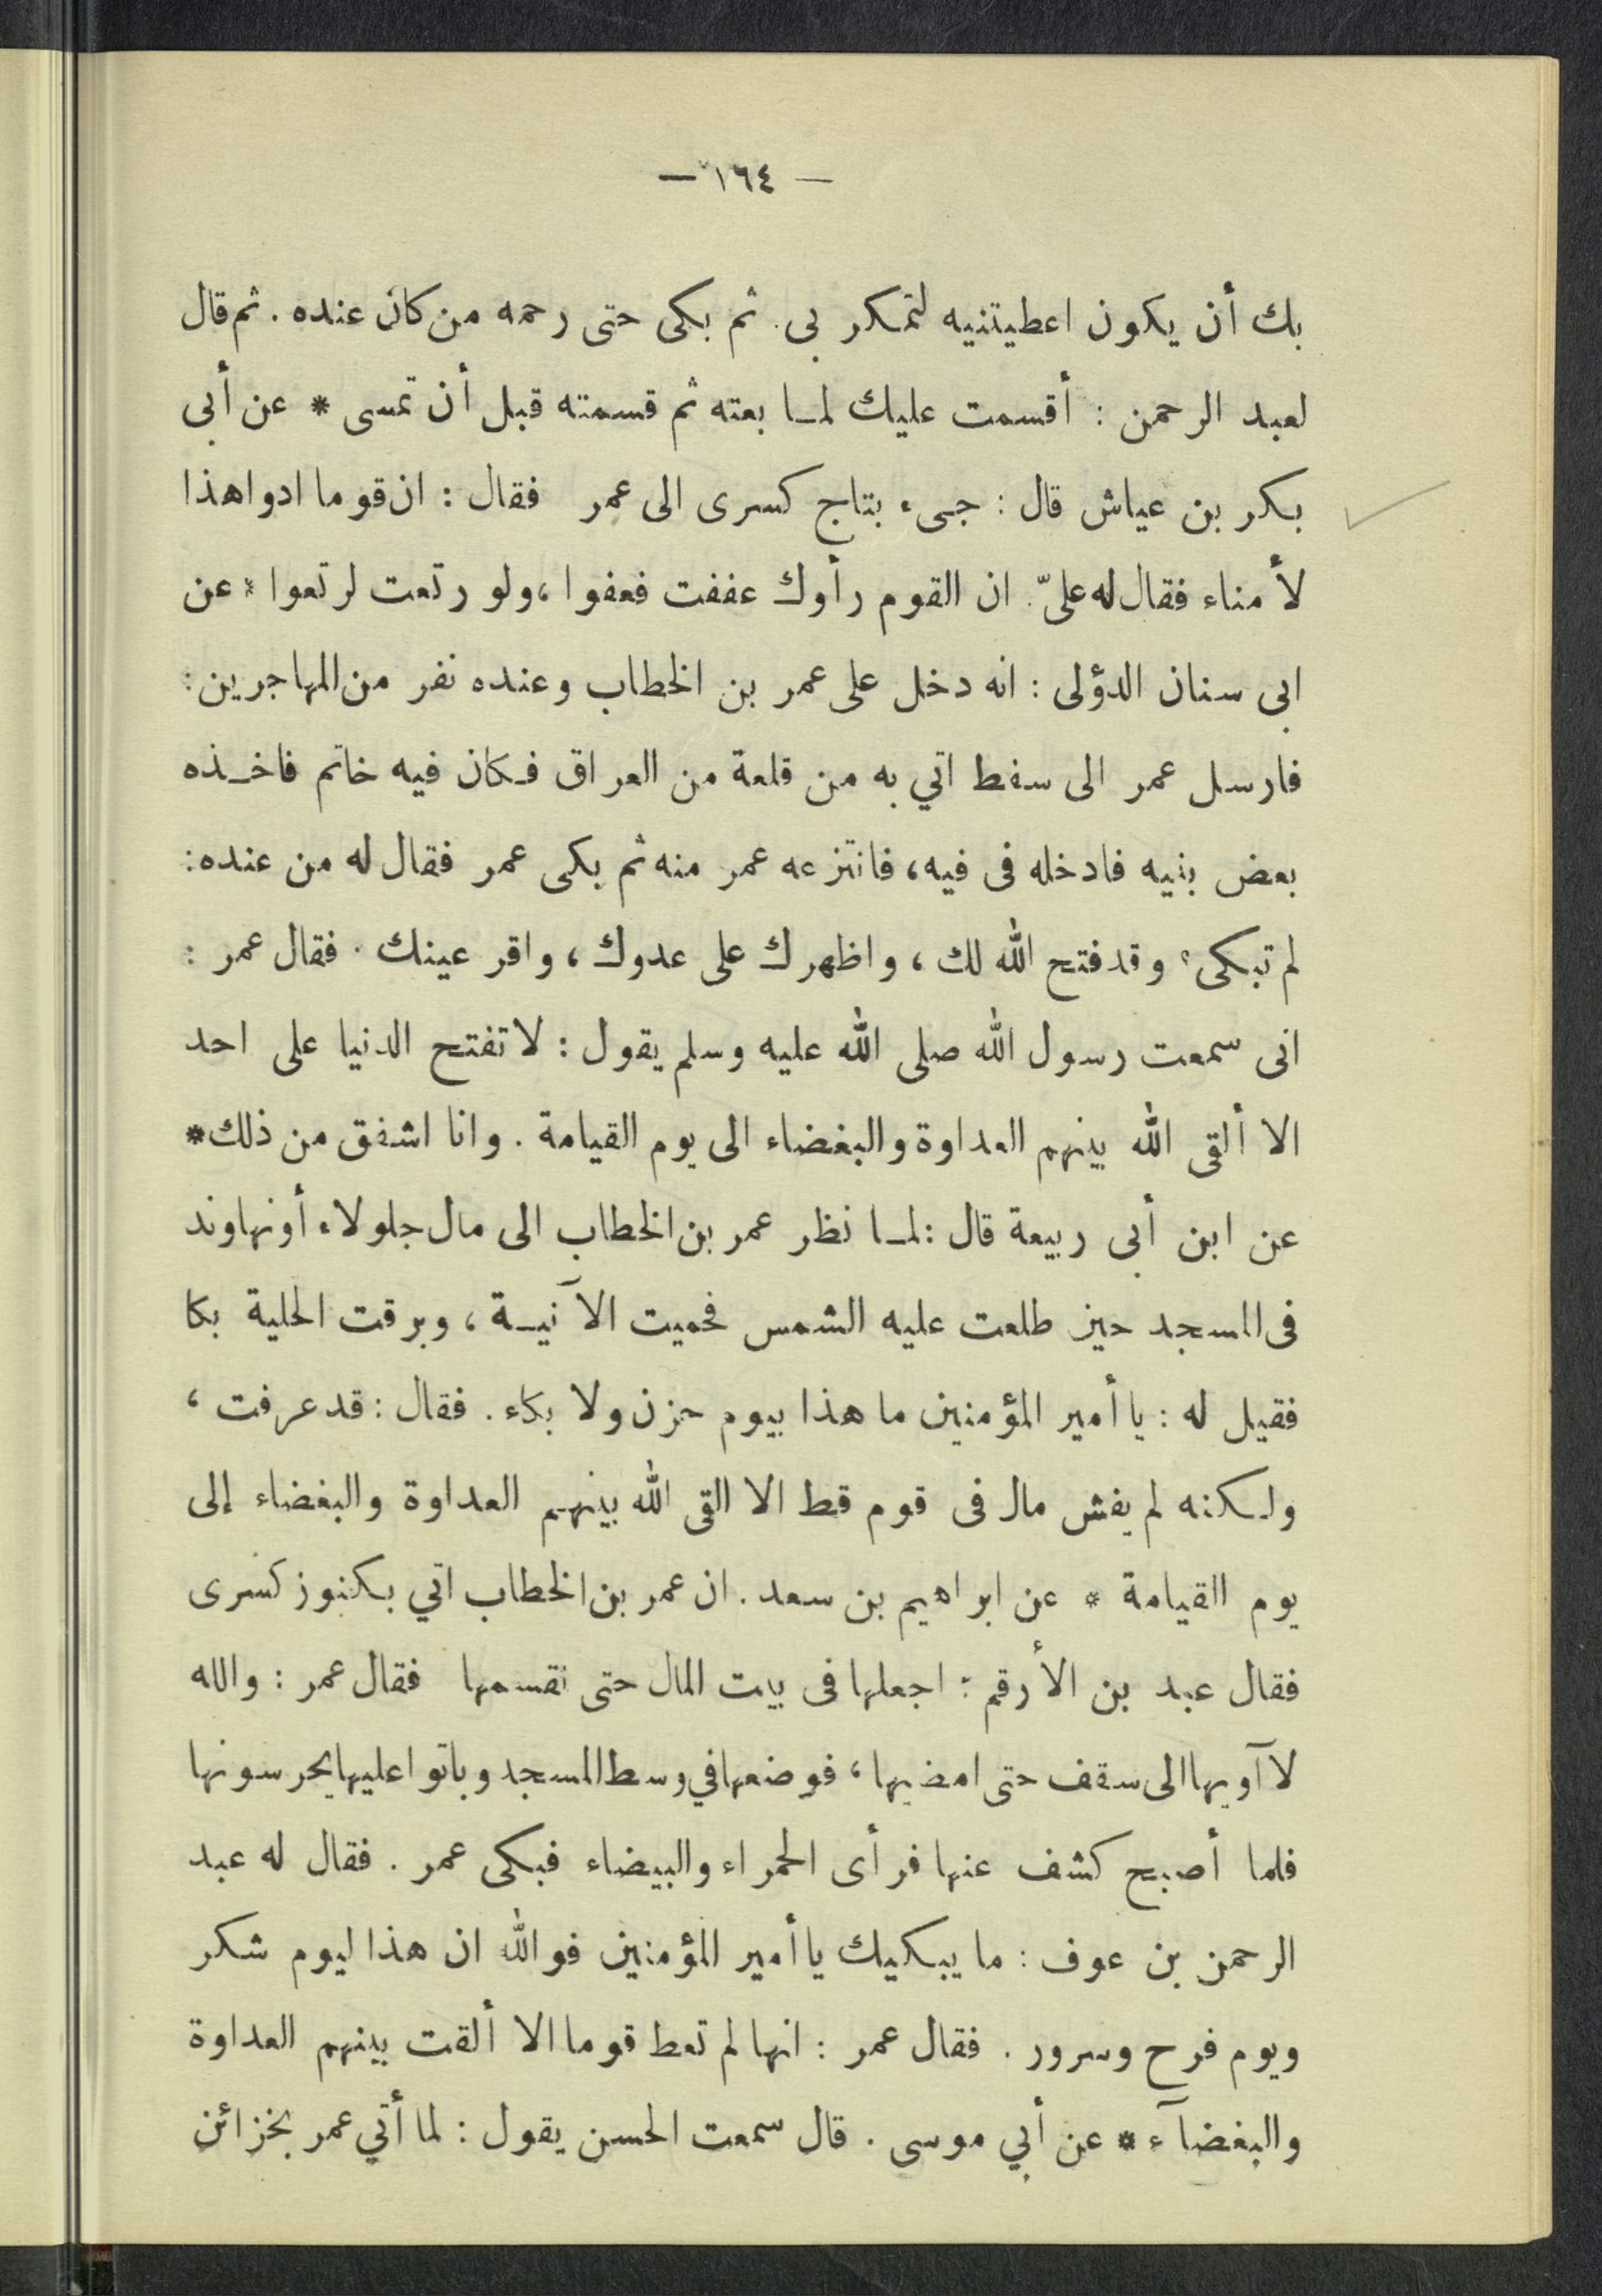 — ١٦٤ —
بك أن يكون اعطيتنيه لتمكر بى. ثم بكى حتى رحمه من كان عنده. ثم قال
لعبد الرحمن : أقسمت عليك لما بعته ثم قسمته قبل أن تمسى * عن أبى
بكر بن عياش قال : جىء بتاج كسرى الى عمر فقال : ان قوما ادوا هذا
لأمناء فقال له علىّ. ان القوم رأوك عففت فعفوا، ولو رتعت لرتعوا * عن
ابى سنان الدؤلى : انه دخل على عمر بن الخطاب وعنده نفر من المهاجرين :
فارسل عمر الى سفط اتي به من قلعة من العراق فكان فيه خاتم فاخذه
بعض بنيه فادخله فى فيه، فانتزعه عمر منه ثم بكى عمر فقال له من عنده :
لم تبكى؟ وقد فتح الله لك ، واظهرك على عدوك ، واقر عينك . فقال عمر :
انى سمعت رسول الله صلى الله عليه وسلم يقول : لا تفتح الدنيا على احد
الا ألقى الله بينهم العداوة والبغضاء الى يوم القيامة . وانا اشفق من ذلك *
عن ابن أبى ربيعة قال : لما نظر عمر بن الخطاب الى مال جلولاء أو نهاوند
فى المسجد حين طلعت عليه الشمس فحميت الآنية ، وبرقت الحلية بكا
فقيل له : يا أمير المؤمنين ما هذا بيوم حزن ولا بكاء . فقال : قد عرفت ،
ولكنه لم يفش مال فى قوم قط الا القى الله بينهم العداوة والبغضاء إلى
يوم القيامة * عن ابراهيم بن سعد . ان عمر بن الخطاب اتي بكنوز كسرى
فقال عبد بن الأرقم : اجعلها فى بيت المال حتى نقسمها فقال عمر : والله
لا آويها الى سقف حتى امضيها ، فوضعها في وسط المسجد وباتوا عليها يحرسونها
فلما أصبح كشف عنها فرأى الحمراء والبيضاء فبكى عمر . فقال له عبد
الرحمن بن عوف : ما يبكيك يا أمير المؤمنين فوالله ان هذا ليوم شكر
ويوم فرح وسرور . فقال عمر : انها لم تعط قوما الا ألقت بينهم العداوة
والبغضآء * عن أبي موسى . قال سمعت الحسن يقول : لما أتي عمر بخزائن